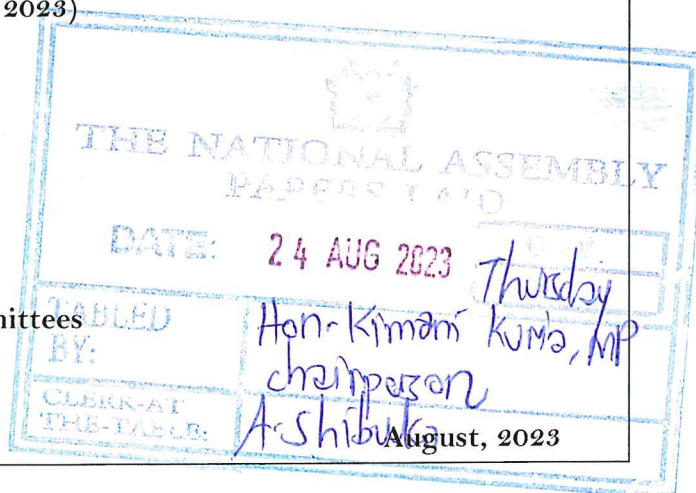 2023)
THE NATIONAL ASSEMBLY
PAPERS LAID
DATE: 24 AUG 2023 Thursday
mittees
TABLED BY: Hon. Kimani Kuria, MP
chairperson
CLERK-AT THE-TABLE: A. Shibuko
August, 2023